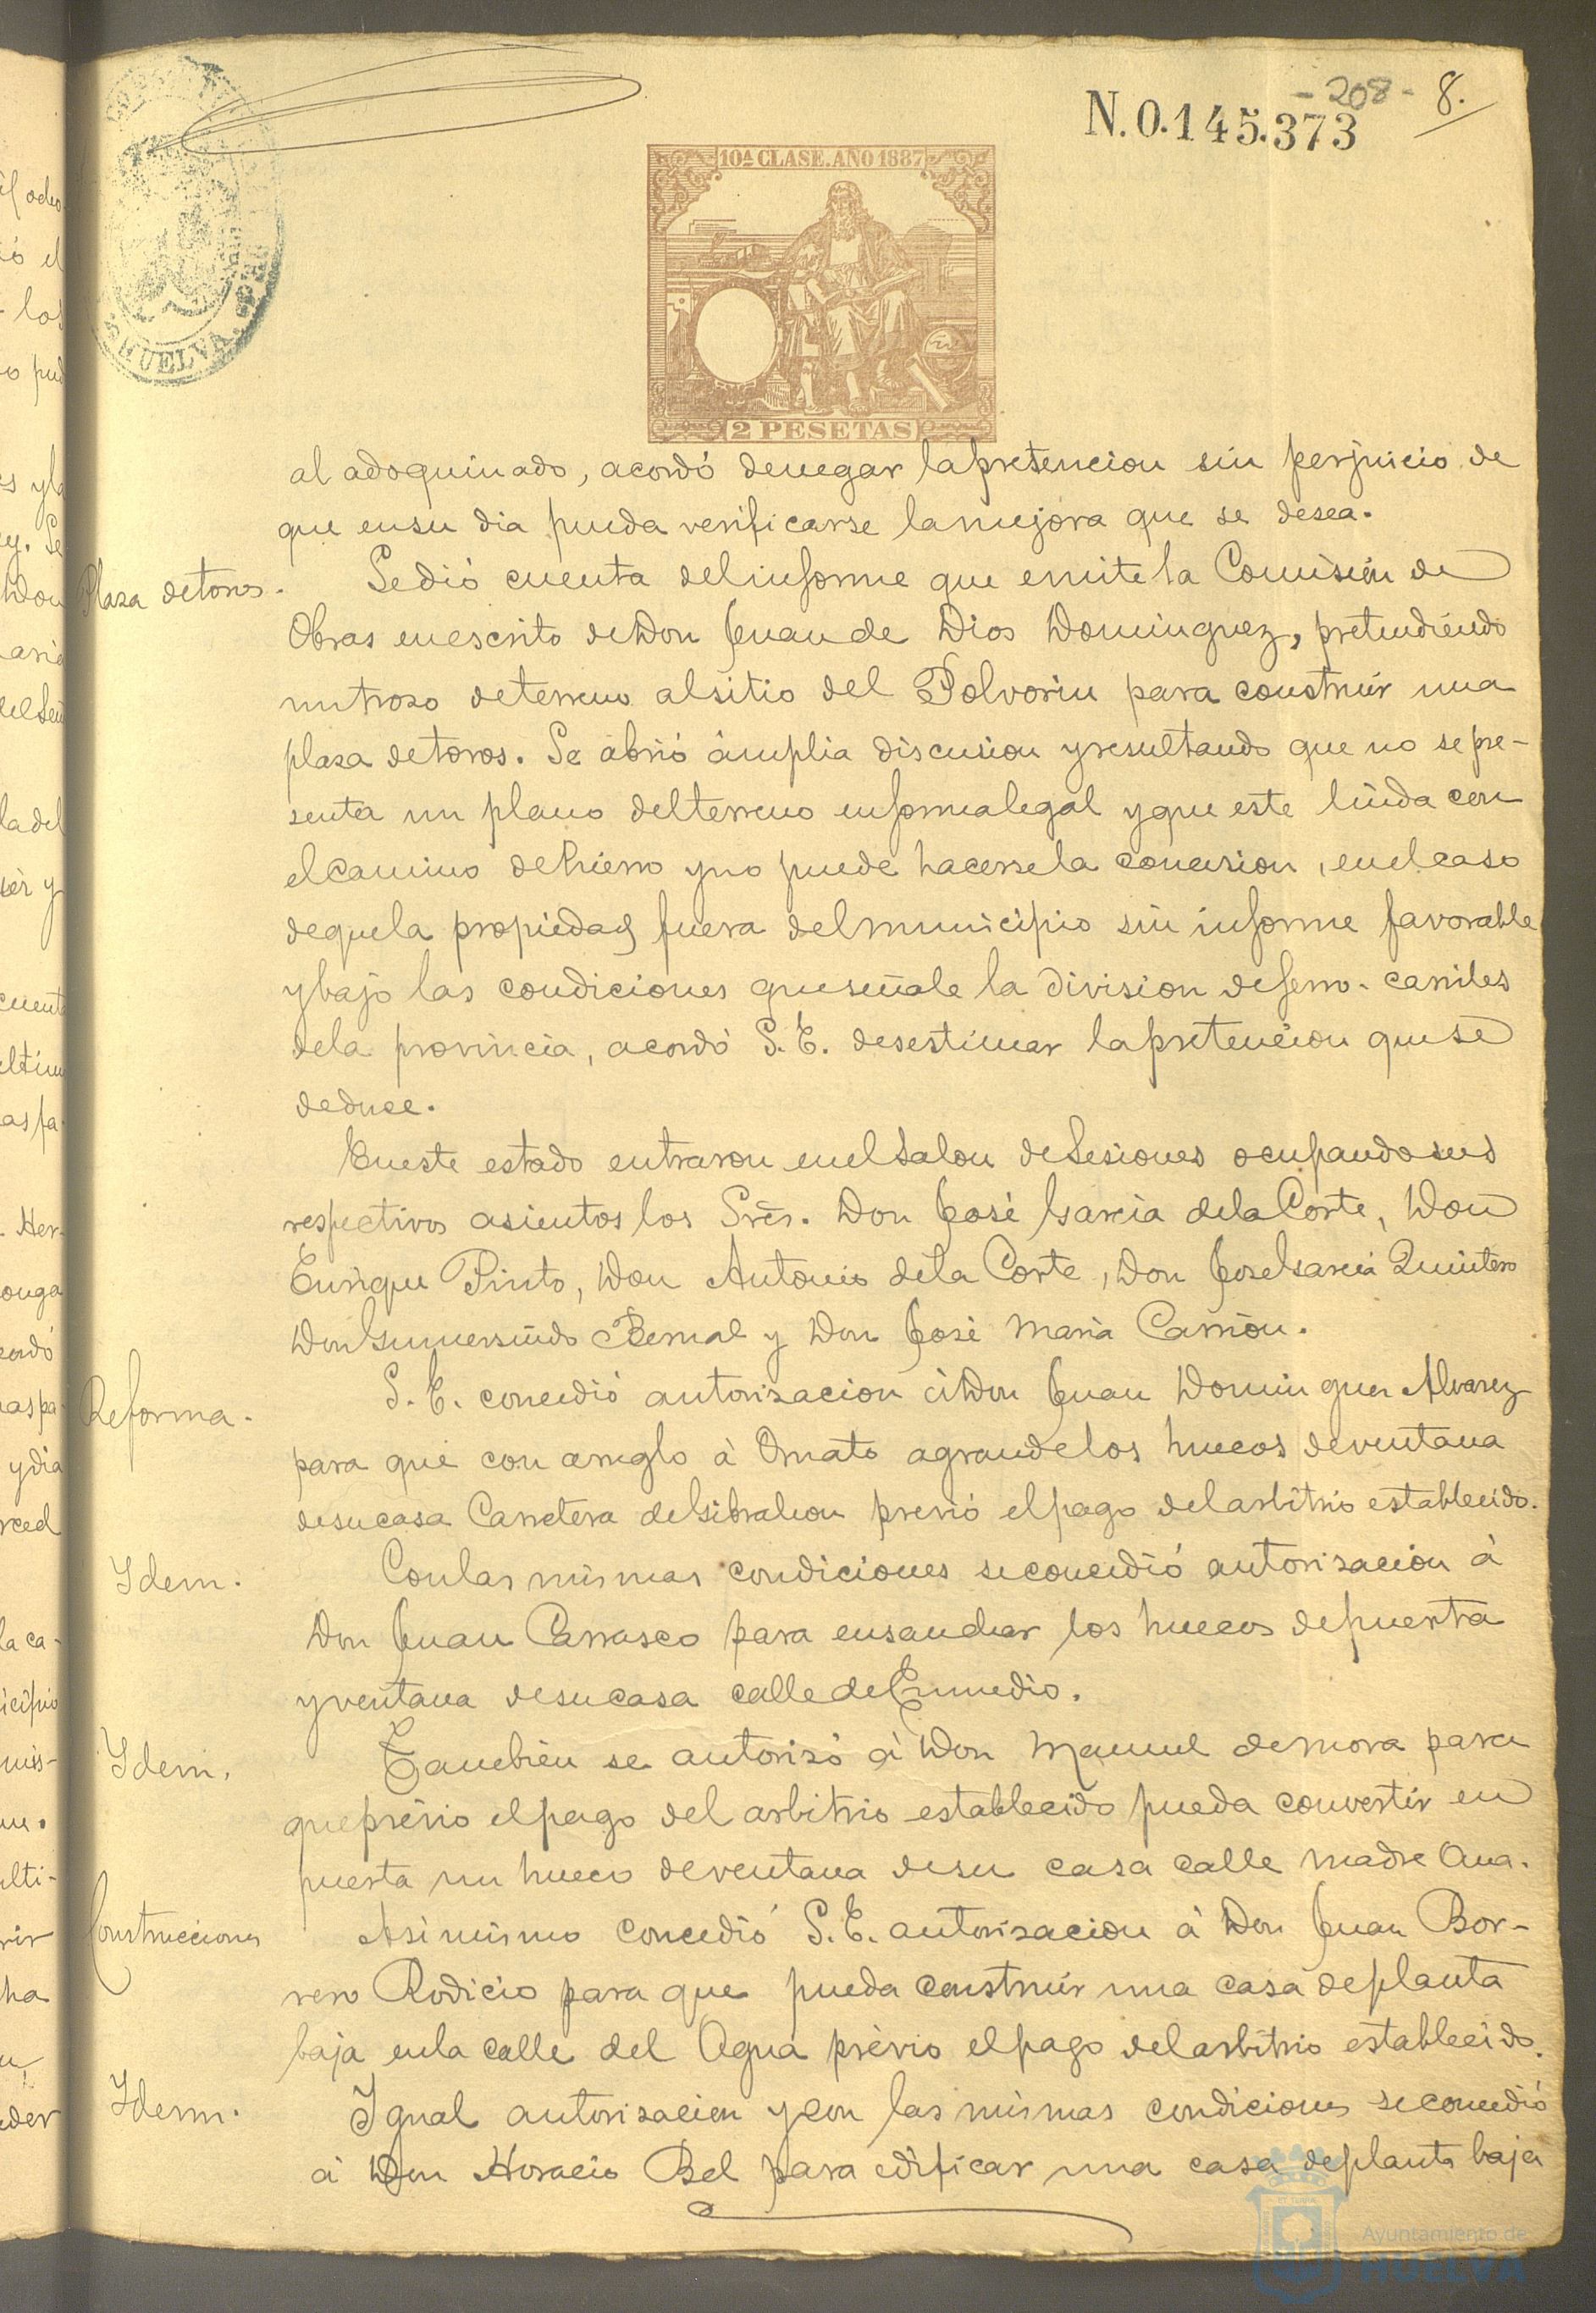 - 208 - 8.
N.0.145.373
10ª CLASE. AÑO 1887
HUELVA
2 PESETAS
al adoquinado, acordó denegar la pretencion sin perjuicio de
que en su dia pueda verificarse la mejora que se desea.
Plaza de toros.
Se dió cuenta del informe que emite la Comisión de
Obras en escrito de Don Juan de Dios Dominguez, pretendiendo
un trozo de terreno al sitio del Polvorin para construir una
plaza de toros. Se abrió ámplia discusion y resultando que no se pre-
senta un plano del terreno en forma legal y que este linda con
el camino de hierro y no puede hacerse la concesion, en el caso
de que la propiedad fuera del municipio sin informe favorable
y bajo las condiciones que señale la division de ferro-carriles
de la provincia, acordó S. E. desestimar la pretencion que se
deduce.
En este estado entraron en el Salon de Sesiones ocupando sus
respectivos asientos los Sres. Don José Garcia de la Corte, Don
Enrique Pinto, Don Antonio de la Corte, Don José Garcia Quintero
Don Gumersindo Bernal y Don José Maria Carrión.
Reforma.
S. E. concedió autorizacion à Don Juan Dominguez Alvarez
para que con arreglo à Ornato agrande los huecos de ventana
de su casa Carretera de Gibraleon previó el pago del arbitrio establecido.
Ydem.
Con las mismas condiciones se concedió autorizacion à
Don Juan Carrasco para ensanchar los huecos de puerta
y ventana de su casa calle de Enmedio.
Ydem.
Tambien se autorizó à Don Manuel de mora para
que prévio el pago del arbitrio establecido pueda convertir en
puerta un hueco de ventana de su casa calle madre Ana.
Construcciones
Asimismo concedió S. E. autorizacion à Don Juan Bor-
rero Rodicio para que pueda construir una casa de planta
baja en la calle del Agua prévio el pago del arbitrio establecido.
Ydem.
Igual autorizacion y con las mismas condiciones se concedió
à Don Horacio Bel para edificar una casa de planta baja
Ayuntamiento de
HUELVA